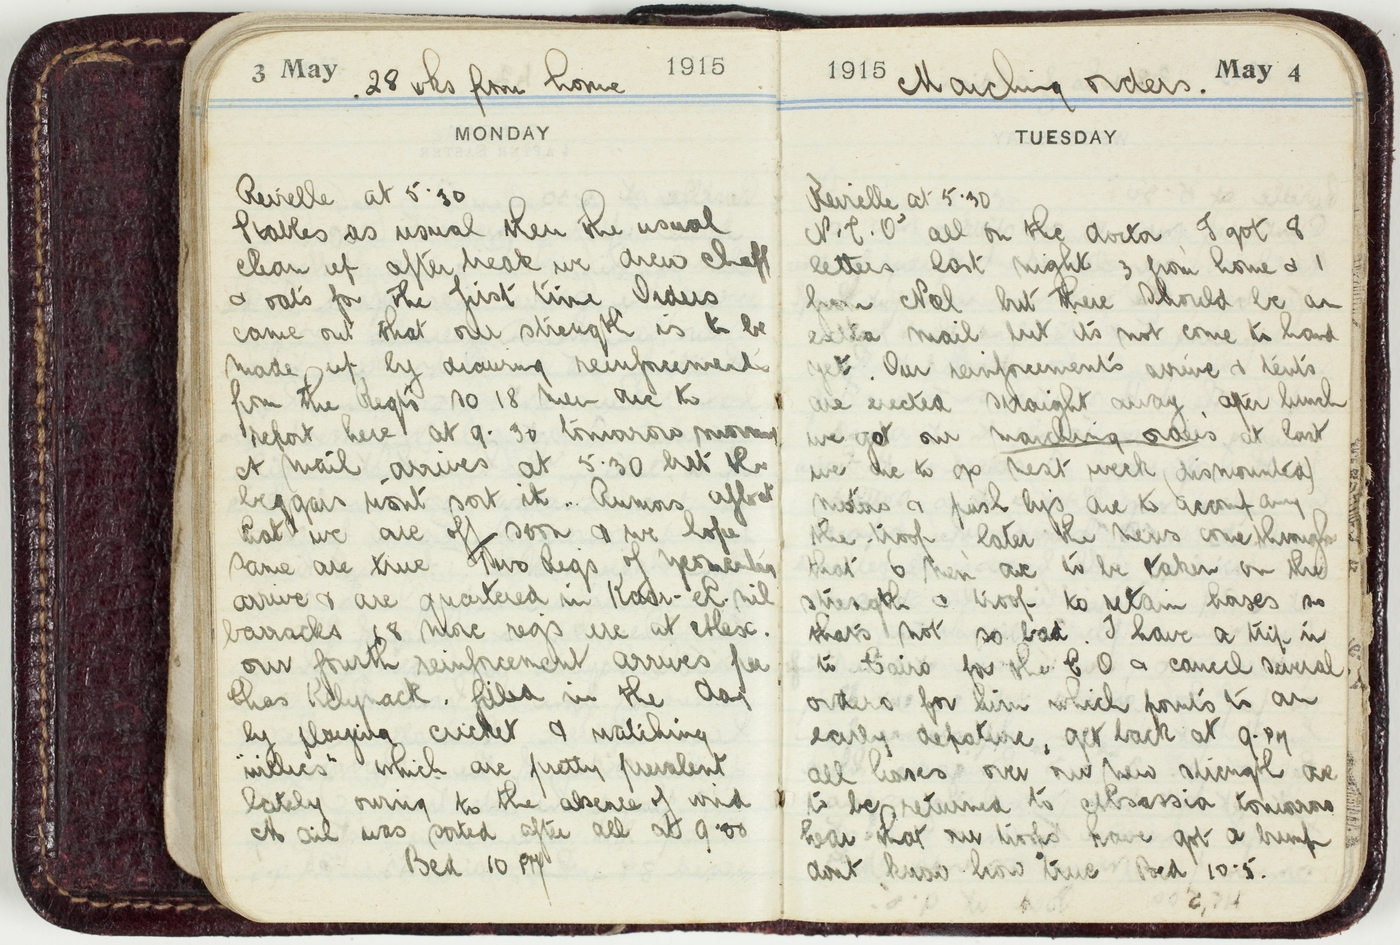 3 May 28 wks from home 1915
MONDAY
Reveille at 5.30
Stables as usual then the usual
clean up after break we drew chaff
& oats for the first time Orders
came out that our strength is to be
made up by drawing reinforcements
from the Regts so 18 men are to
report here at 9.30 tomorrow
A mail arrives at 5.30 but the
beggars wont sort it .. Rumors afloat
that we are off soon & we hope
same are true Two Regs of Yeomanry
arrive & are quartered in Kasr-el-nil
barracks 18 more regs are at Alex.
our fourth reinforcement arrives per
Chas Kelynack. filled in the day
by playing cricket & watching
"willies" which are pretty prevalent
lately owing to the absence of wind
Mail was sorted after all at 9.00
Bed 10 PM
1915 Marching orders. May 4
TUESDAY
Reveille at 5.30
all on the doctor I got 8
letters last night 3 from home & 1
from but there should be an
extra mail but its not come to hand
yet. Our reinforcements arrive & tents
are erected straight away, after lunch
we got our marching orders at last
we are to go next week (dismounted)
motors & push bys are to accompany
the troop later the news come through
that 6 men are to be taken on the
strength troop to retain horses so
thats not so bad. I have a trip in
to Cairo for the C O & cancel several
orders for him which points to an
early departure, get back at 9.PM
all horses over our new strength are
to be returned to Abbassia tomorrow
hear that our have got a bump
dont know how true Bed 10.5.